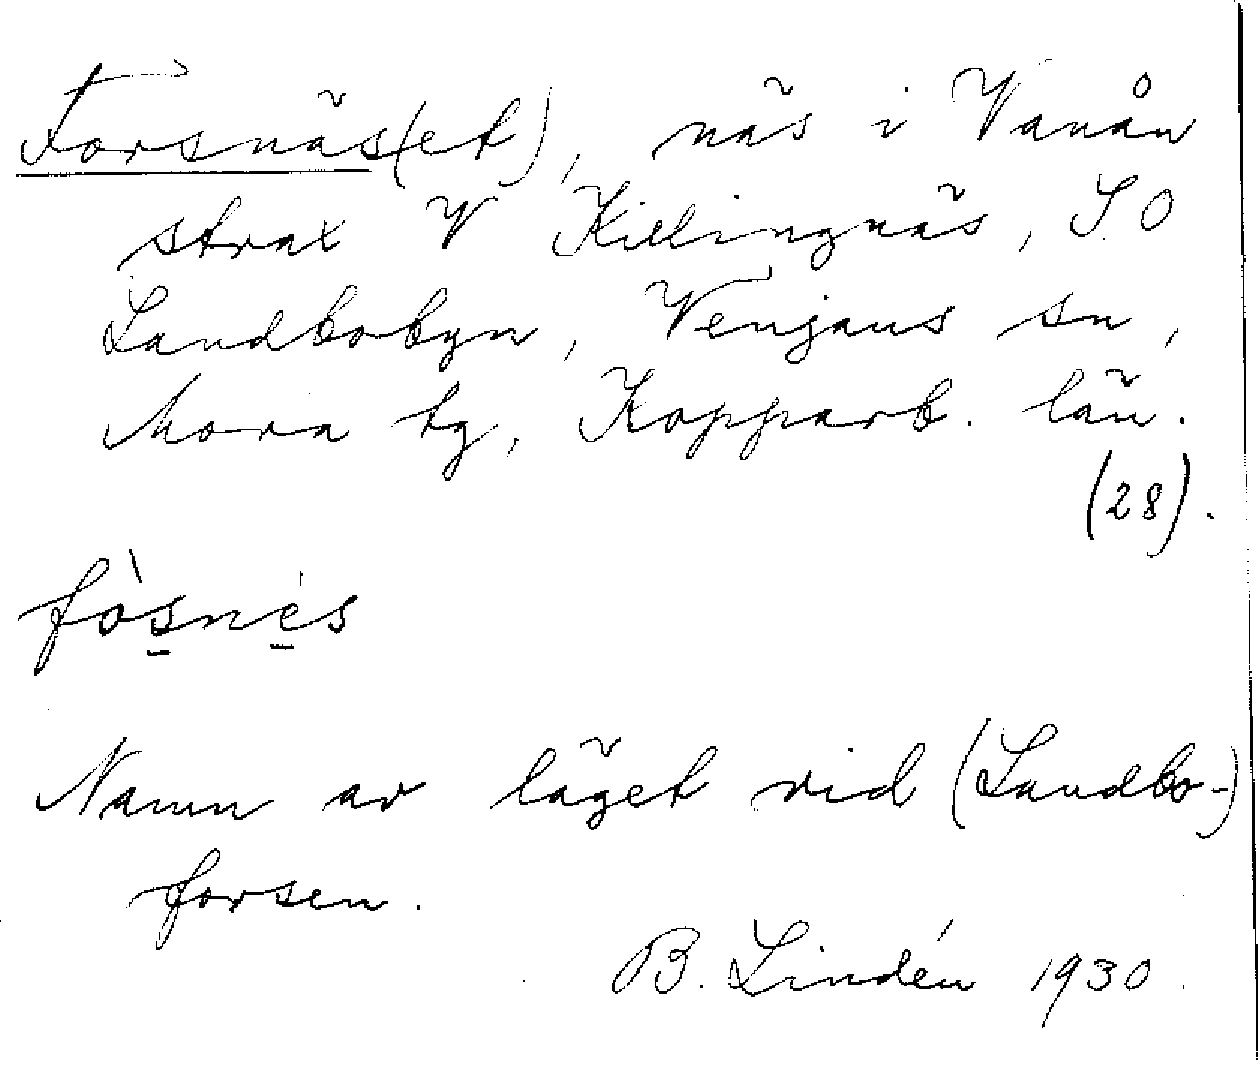 Forsnäs(et), näs i Vanån
strax V Killingnäs, S.O
Landbobyn, Venjans sn,
Mora tg, Kopparb. län.
(28).
fòs̠ne̠s
Namn av läget vid (Landbo-)
forsen.
B. Lindén 1930.